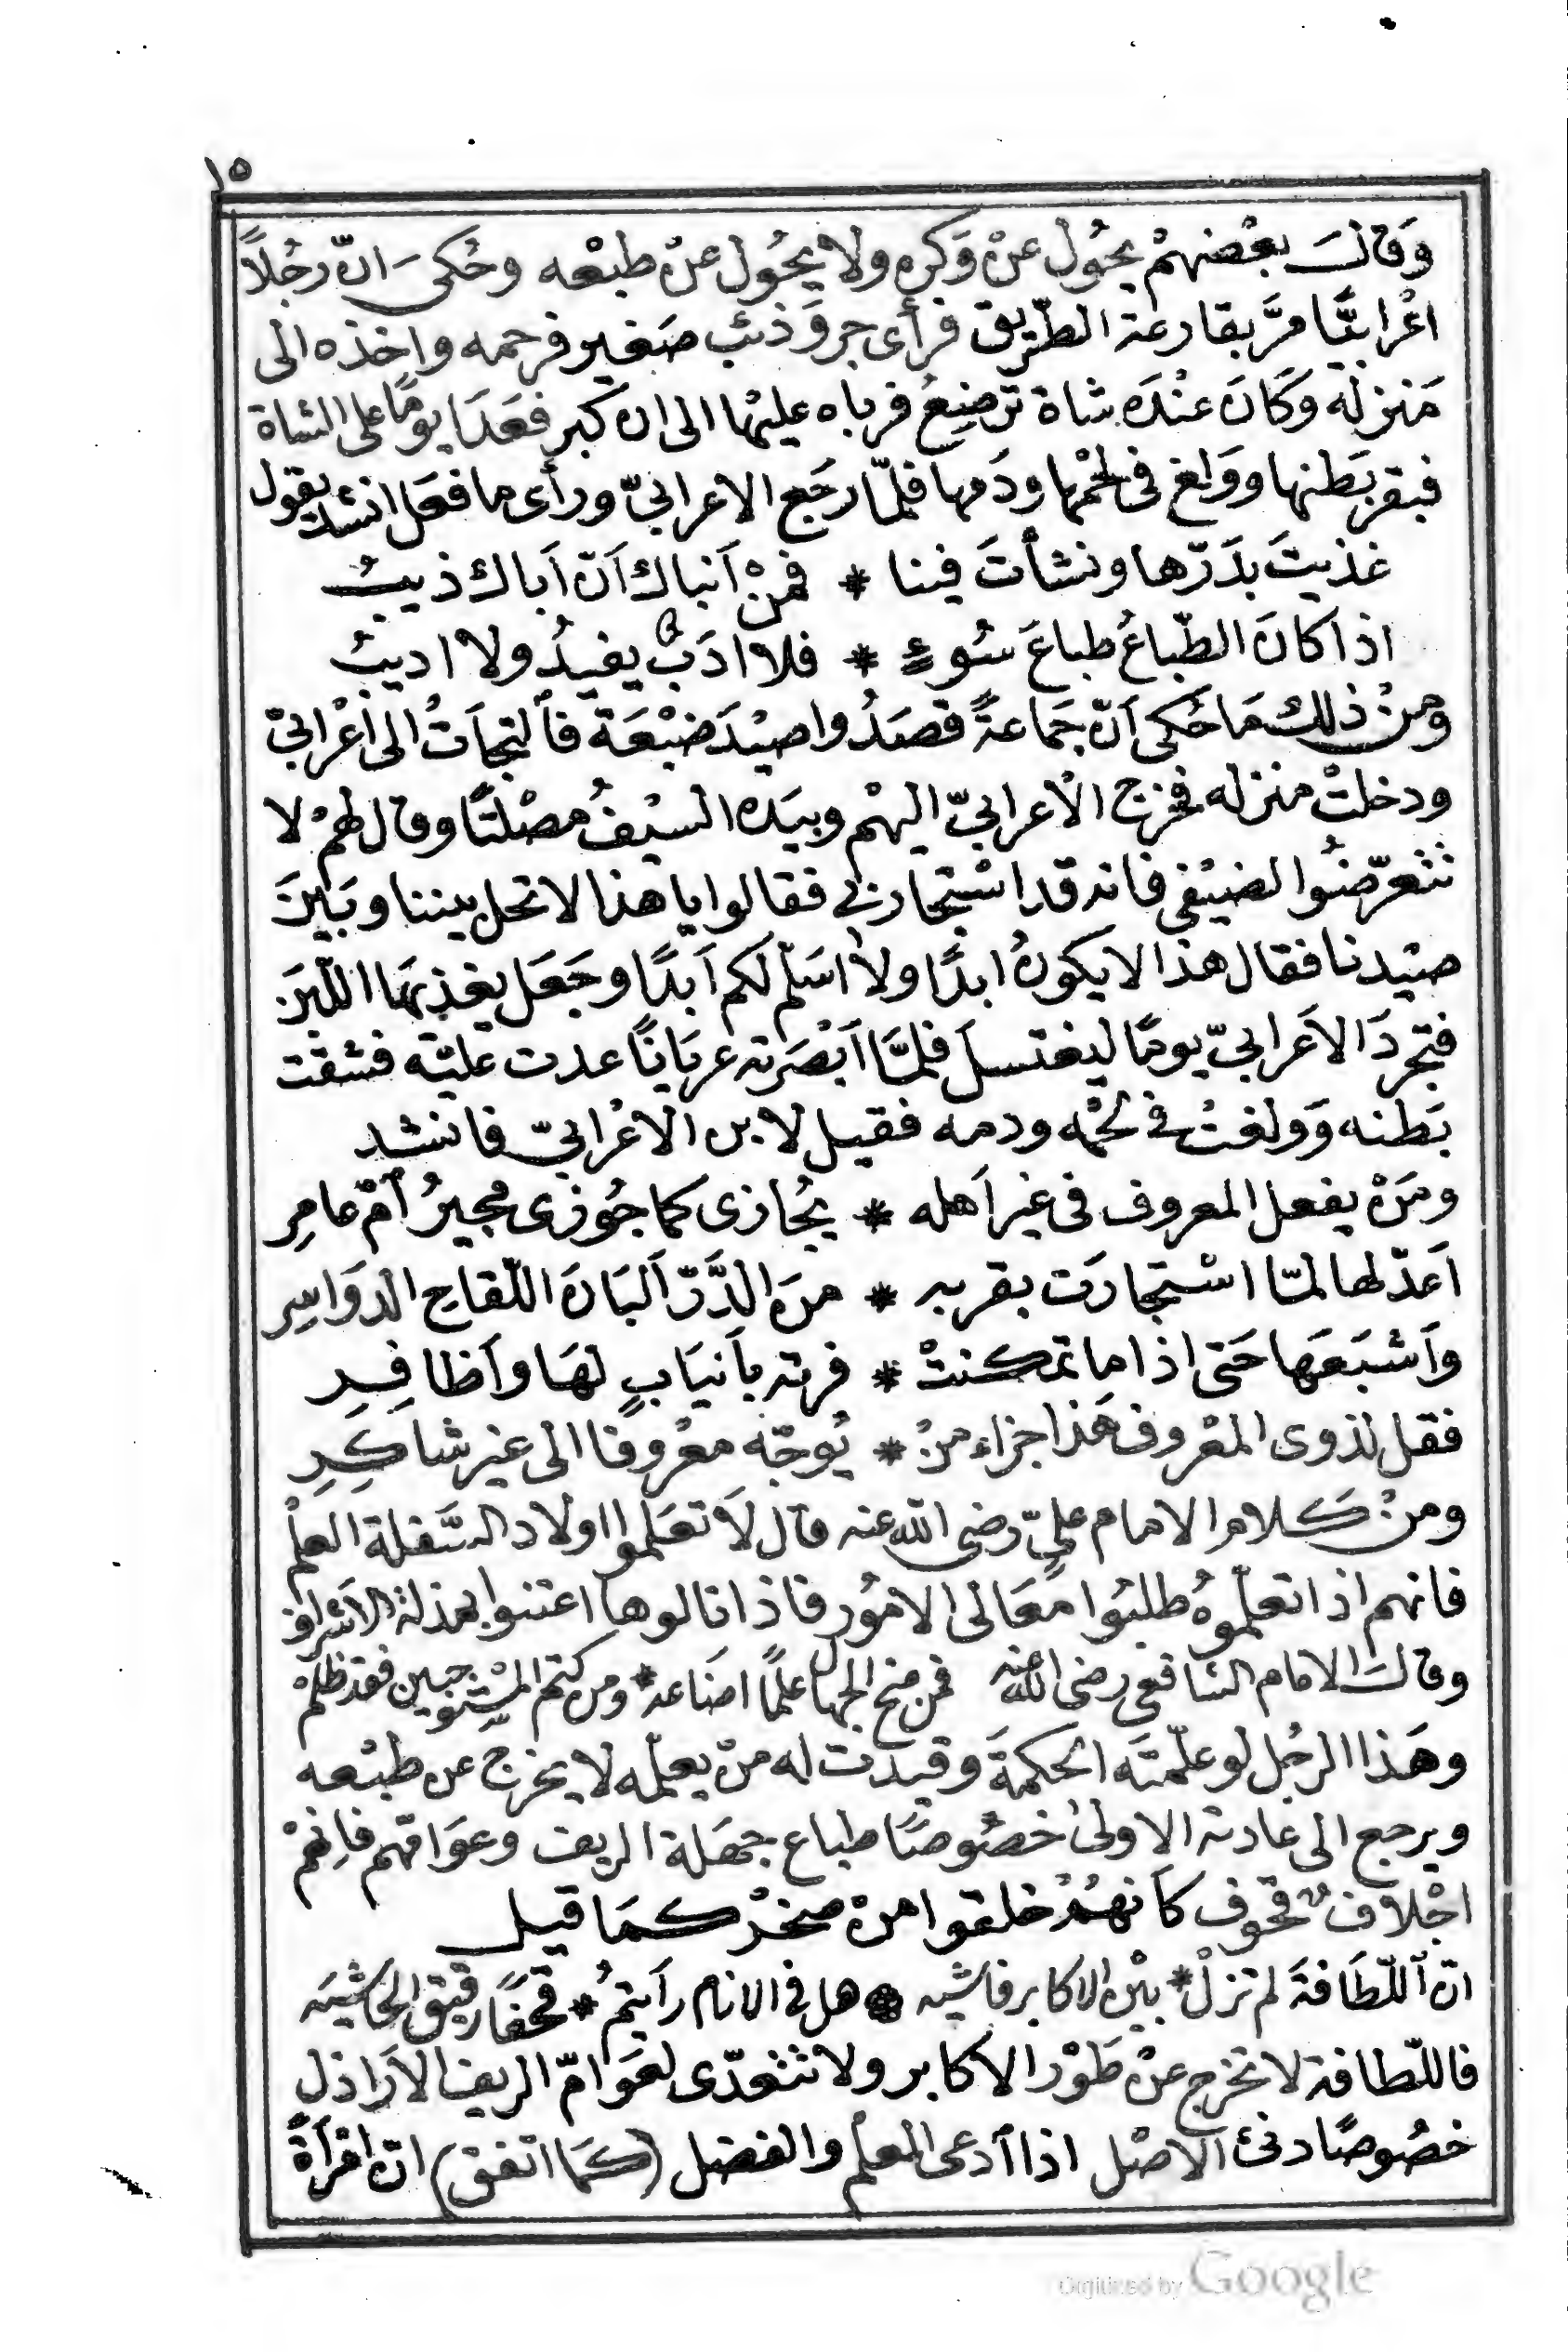 ١٥
وَقالَ بعْضهمْ يحُول عنْ وَكرِه ولا يحُول عنْ طبْعه وحُكىَ انّ رجُلاً
اعْرابيًّا مرَّ بقارعة الطّريق فرأى جروَ ذئب صَغير فرحمه واخذه الى
مَنزله وكَانَ عنْدَه شاة ترضِعُ فرباه عليْها الى ان كبر فعَدَا يومًا على الشاة
فبقر بَطنها ووَلغ فى لحْمها ودَمها فلمّا رجَع الاعرابىّ ورأى ما فعَل انشد يقول
غذيتَ بدَرّها ونشأتَ فينا * فمنْ اَنباك اَنّ اَباك ذيبُ
اذا كانَ الطّباعُ طباعَ سُوءٍ * فلا ادَبٌ يفيدُ ولا اديبُ
ومنْ ذلك مَا حُكى اَنّ جَماعةً قصَدُوا صيْدَ ضبْعَة فاَلتجاَتْ الى اَعْرابىّ
ودخلتْ منزله فخرج الاْعرابىّ اليهْم وبيَده السيْفُ مصْلتًا وقال لهمْ لا
تتعرّضُوا لضيْفى فانه قد اسْتجارنى فقالوا يا هذا لا تحل بيننا وبَينَ
صيْدنا فقال هذا لا يكونُ ابدًا ولا اسَلّم لكم اَبدًا وجَعَل يغذيهَا اللّبَن
فتجردَ الاَعَرابىّ يومًا ليغتسلَ فلمَّا اَبْصَرته عريَانًا عدت عليْه فشقت
بَطنه وَولغتْ فى لحْمه ودمه فقيل لابن الاعْرابىّ فانشد
ومَنْ يفعل المعروف فى غير اَهله * يُجازى كما جُوزى مجيرُ اُمّ عامِرِ
اَعدّ لها لمّا اسْتجارَت بقربه * منَ الدَّرّ اَلبَانَ اللّقاحِ الدوَاسِرِ
وَاَشْبَعَها حَتى اذا ما تمكنتْ * فرته باَنيَابٍ لهَا واَظافِرِ
فقل لذوى المعْروف هَذا جزاء منْ * يُوجّه معْروفا الى غيْر شاكِرِ
ومنْ كَلام الامام علىّ رضى الله عنه قال لاَ تعَلموا اولاد السّفلة العلْم
فانهم اذا تعلّموهُ طلبُوا معَالى الامُور فاذا نالوها اعتنوا بمذلة الاَشراف
وقالَ الامام الشافعى رضى الله عنه فمن منح الجهال علمًا اضَاعه * ومن كتم المسْتوجبين فقد ظلمْ
وهَذا الرجُل لو علّمتَه الحكمةَ وقيدت له منْ يعلّمه لا يخرج عن طبْعه
ويرجع الى عادته الاولىٰ خصُوصًا طباع جهَلة الريف وعوَامّهم فاِنهمْ
اجْلاف قحوف كاَنهمُ خلقوا منْ صخْر كمَا قيل
انّ اَللّطَافةَ لم تزلْ * بيْن الاكابر فاشْيه * هل فى الانام راَيتمُ * قحْفًا رقيق الحَاشْيَه
فاللّطافة لا تخرج عنْ طَوْر الاكابر ولا تتعدّى لعَوامّ الريف الاَراذل
خصُوصًا دنىء الاَصْل اذا اَدعى العلم والفضل (كَما اتفق) انّ امْراَةً
Digitized by Google